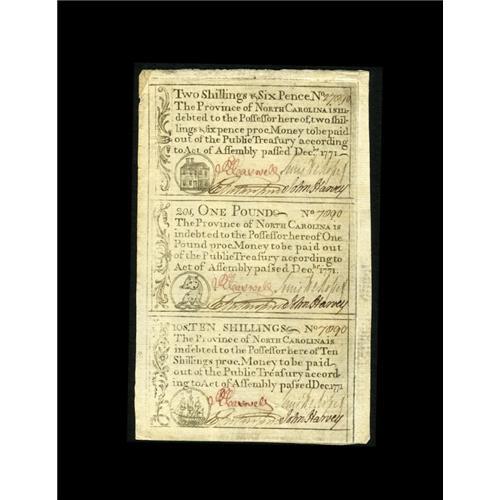 Two Shillings & Six Pence. No 7090
The Province of NORTH CAROLINA is in-
debted to the Possessor hereof, two shil-
lings & six pence proc. Money to be paid
out of the Public Treasury according
to Act of Assembly passed Decr. 1771
John Harvey
20s, ONE POUND No 7090
The Province of NORTH CAROLINA is
indebted to the Possessor hereof One
Pound proc. Money to be paid out
of the Public Treasury according to
Act of Assembly passed Decbr. 1771.
John Harvey
10s, TEN SHILLINGS No 7090
The Province of NORTH CAROLINA is
indebted to the Possessor here of Ten
Shillings proc. Money to be paid
out of the Public Treasury accord-
ing to Act of Assembly passed Dec. 1771
John Harvey